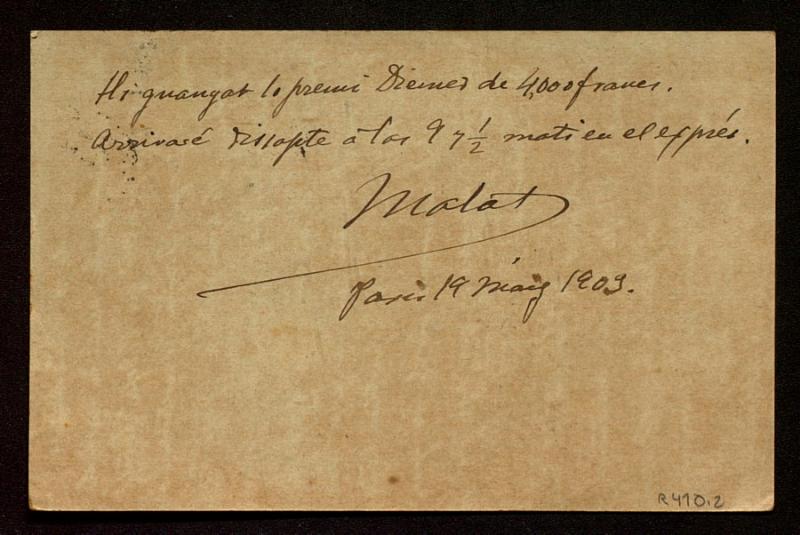 Hi guanyat lo premi Diemer de 4,000 francs.
Arrivaré dissapte á las 9 y 1/2 mati en el exprés.
Malats
Paris 19 Maig 1903.
R 410.2